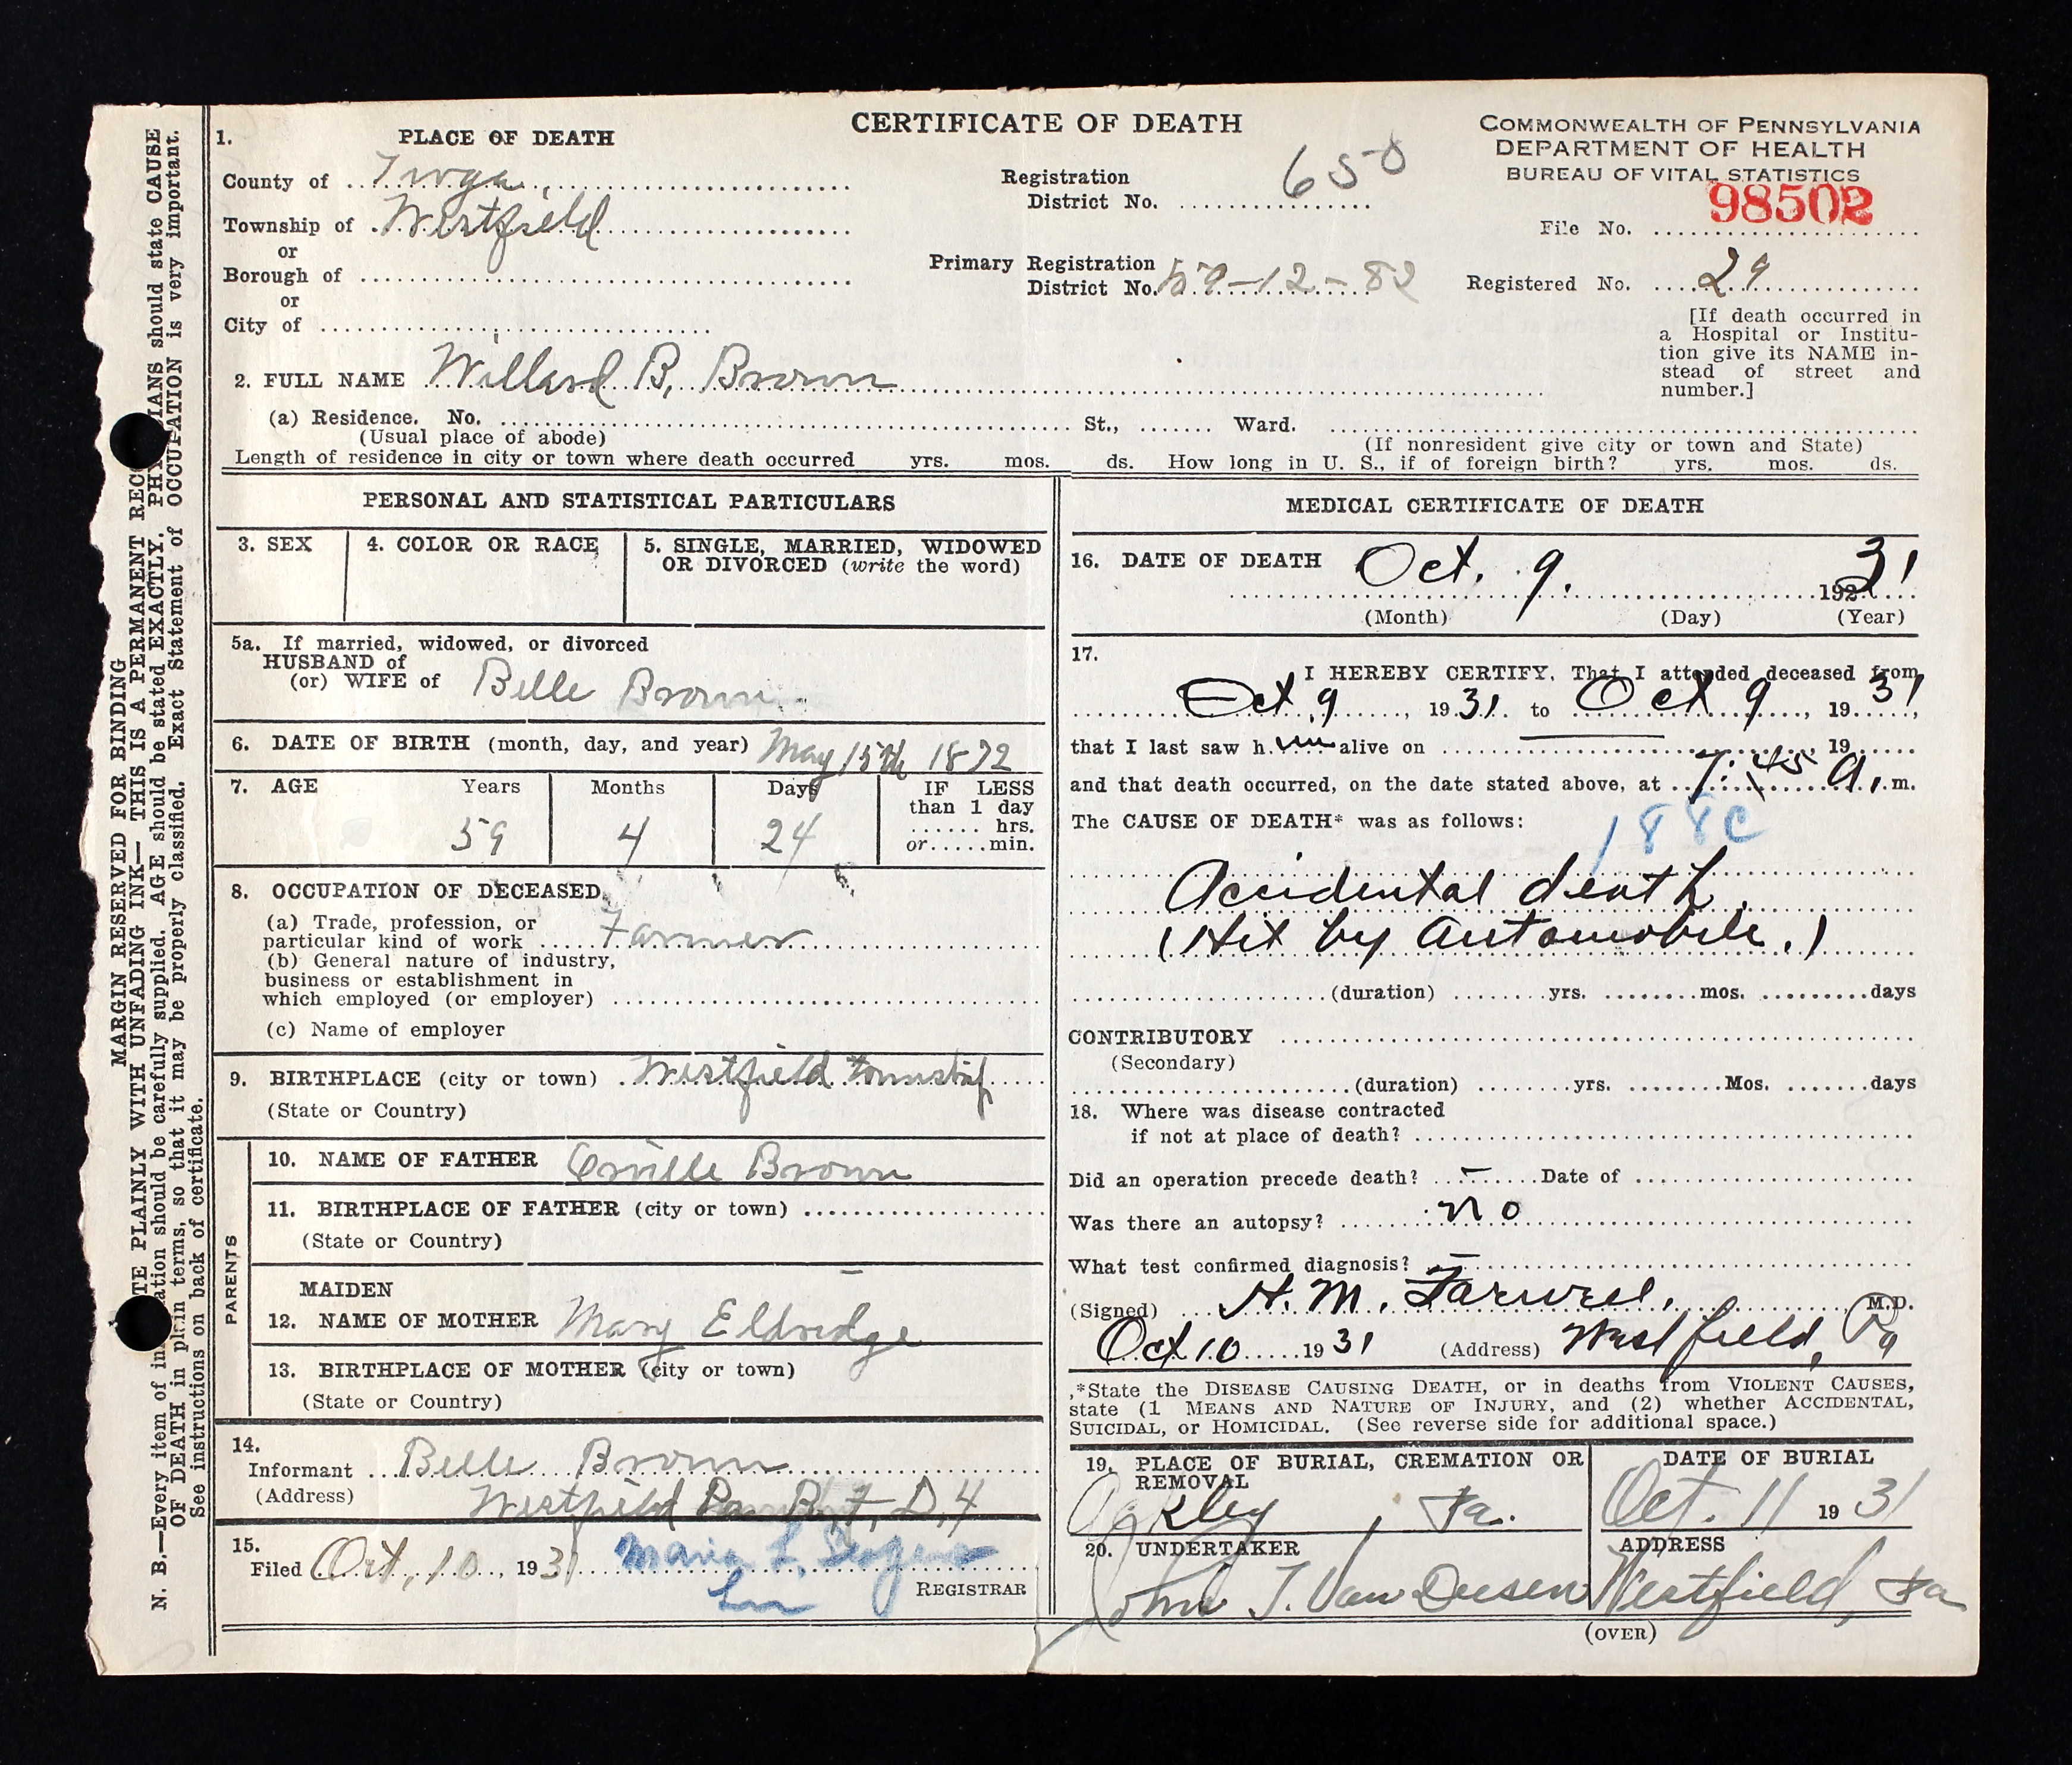 CERTIFICATE OF DEATH
COMMONWEALTH OF PENNSYLVANIA
DEPARTMENT OF HEALTH
BUREAU OF VITAL STATISTICS
1. PLACE OF DEATH
County of Tioga
Township of Westfield
or
Borough of
or
City of
Registration
District No. 650
Primary Registration
District No. 59-12-82
98502
File No.
Registered No. 29
[If death occurred in
a Hospital or Institu-
tion give its NAME in-
stead of street and
number.]
2. FULL NAME Willard B. Brown
(a) Residence. No. St., Ward.
(Usual place of abode) (If nonresident give city or town and State)
Length of residence in city or town where death occurred yrs. mos. ds. How long in U. S., if of foreign birth? yrs. mos. ds.
PERSONAL AND STATISTICAL PARTICULARS
3. SEX 4. COLOR OR RACE 5. SINGLE, MARRIED, WIDOWED
OR DIVORCED (write the word)
5a. If married, widowed, or divorced
HUSBAND of
(or) WIFE of Belle Brown
6. DATE OF BIRTH (month, day, and year) May 15th 1872
7. AGE Years Months Days IF LESS
than 1 day
hrs.
59 4 24 or min.
8. OCCUPATION OF DECEASED
(a) Trade, profession, or
particular kind of work Farmer
(b) General nature of industry,
business or establishment in
which employed (or employer)
(c) Name of employer
9. BIRTHPLACE (city or town) Westfield Township
(State or Country)
PARENTS
10. NAME OF FATHER Orville Brown
11. BIRTHPLACE OF FATHER (city or town)
(State or Country)
MAIDEN
12. NAME OF MOTHER Mary Eldridge
13. BIRTHPLACE OF MOTHER (city or town)
(State or Country)
14.
Informant Belle Brown
(Address) Westfield Pa R.F.D. 4
15.
Filed Oct. 10, 1931
REGISTRAR
MEDICAL CERTIFICATE OF DEATH
16. DATE OF DEATH Oct. 9. 31
192
(Month) (Day) (Year)
17.
I HEREBY CERTIFY, That I attended deceased from
Oct 9, 1931. to Oct 9, 1931,
that I last saw him alive on , 19
and that death occurred, on the date stated above, at 7:45 a. m.
The CAUSE OF DEATH* was as follows: 188c
Accidental death.
(Hit by Automobile.)
(duration) yrs. mos. days
CONTRIBUTORY
(Secondary)
(duration) yrs. Mos. days
18. Where was disease contracted
if not at place of death?
Did an operation precede death? - Date of
Was there an autopsy? no
What test confirmed diagnosis? -
(Signed) H. M. M.D.
Oct 10 1931 (Address) Westfield, Pa
*State the DISEASE CAUSING DEATH, or in deaths from VIOLENT CAUSES,
state (1 MEANS AND NATURE OF INJURY, and (2) whether ACCIDENTAL,
SUICIDAL, or HOMICIDAL. (See reverse side for additional space.)
19. PLACE OF BURIAL, CREMATION OR
REMOVAL
Oakley, Pa.
DATE OF BURIAL
Oct. 11 1931
20. UNDERTAKER
John T. Van Deusen
ADDRESS
Westfield, Pa
(OVER)
MARGIN RESERVED FOR BINDING
TE PLAINLY WITH UNFADING INK— THIS IS A PERMANENT REC
N. B.—Every item of in ation should be carefully supplied. AGE should be stated EXACTLY. PHY IANS should state CAUSE
OF DEATH in plain terms, so that it may be properly classified. Exact Statement of OCCUPATION is very important.
See instructions on back of certificate.